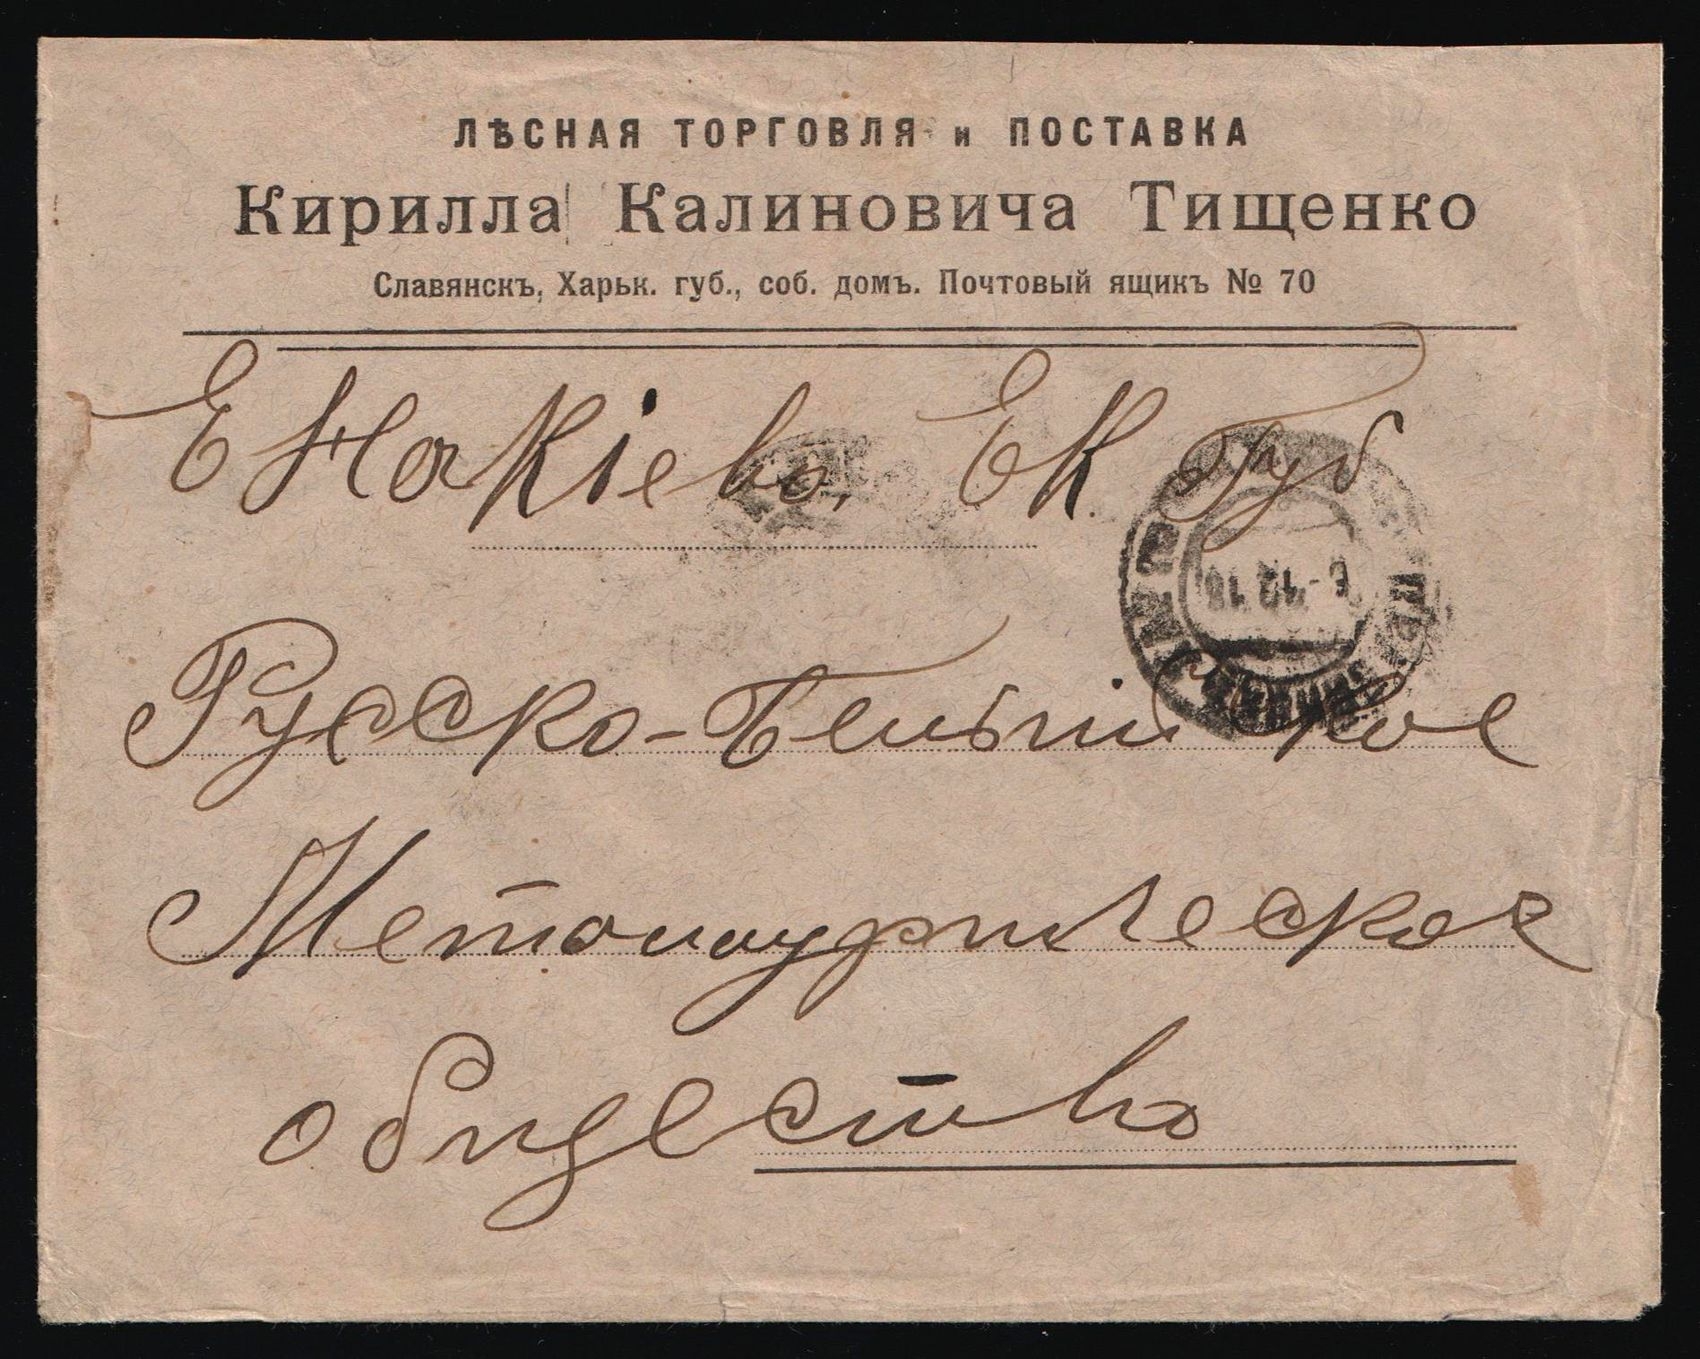 ЛѢСНАЯ ТОРГОВЛЯ и ПОСТАВКА
Кирилла Калиновича Тищенко
Славянскъ, Харьк. губ., соб. домъ. Почтовый ящикъ № 70
Енакіево, Ек. Губ
Русско-Бельгийское
Металлургическое
общество
6-12 18